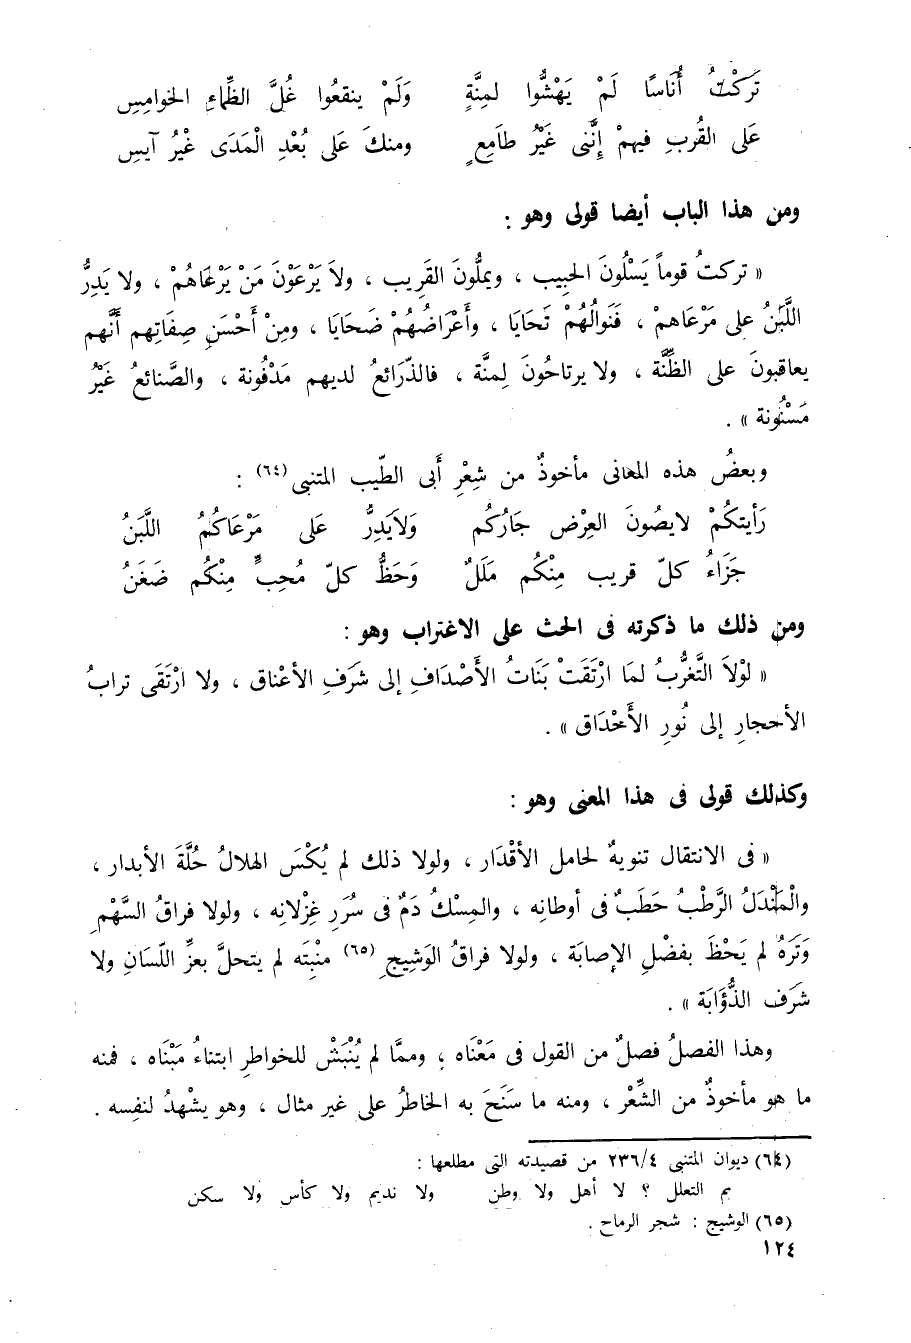 تَرَكْتُ أُنَاسًا لَمْ يَهْشُّوا لمِنَّةٍ وَلَمْ ينقعُوا غُلَّ الظِّماءِ الخوامِسِ
عَلى القُربِ فيهمْ إنَّنى غَيْرُ طامَعٍ ومنكَ عَلى بُعْدِ الْمَدَى غَيْرُ آيسِ
ومن هذا الباب أيضا قولى وهو :
« تركتُ قوماً يَسْلُونَ الحبِيب ، ويملُّونَ القَرِيب ، ولاَ يَرْعَوْنَ مَنْ يَرْعَاهُمْ ، ولا يَدِرُّ
اللَّبَنُ على مَرْعَاهمْ ، فَنَوالُهُمْ تَحَايَا ، وأعْرَاضُهُمْ ضَحَايَا ، ومِنْ أَحْسَنِ صِفَاتِهم أنَّهم
يعاقبونَ على الظِّنَّة ، ولا يرتاحُونَ لِمنة ، فالذّرَائعُ لديهم مَدْفُونة ، والصَّنائعُ غَيْرُ
مَسْنُونة » .
وبعضُ هذه المعانى مأخوذٌ من شِعْرِ أَبى الطّيب المتنبى (٦٤) :
رَأيتكُمْ لايصُونَ العِرْض جَارُكُم وَلاَيَدِرُّ عَلى مَرْعَاكُمُ اللَّبَنُ
جَزَاءُ كلّ قريب مِنْكُم مَلَلٌ وَحَظُّ كلّ مُحِبٍّ مِنْكُم ضَغَنُ
ومن ذلك ما ذكرته فى الحث على الاغتراب وهو :
« لوْلاَ التَّغرُّبُ لمَا ارْتَقَتْ بَنَاتُ الأَصْدَافِ إلى شَرَفِ الأعْناق ، ولا ارْتَقَى ترابُ
الأحجارِ إلى نُورِ الأَحْدَاق » .
وكذلك قولى فى هذا المعنى وهو :
« فى الانتقال تنويهٌ لحامل الأقْدَار ، ولولا ذلك لم يُكْسَ الهلالُ حُلَّةَ الأبدار ،
والْمَنْدَلُ الرَّطْبُ حَطَبٌ فى أوطانِه ، والمِسْكُ دَمٌ فى سُرَرِ غِزْلانِه ، ولولا فراقُ السَّهْمِ
وَتَرَهُ لم يَحْظَ بفضْلِ الإصابَة ، ولولا فراقُ الوَشِيج (٦٥) منْبِتَه لم يتحلَّ بعزِّ اللّسَانِ ولا
شَرَف الذُّؤَابَة » .
وهذا الفصلُ فصلٌ من القول فى مَعْنَاه ، وممَّا لم يُنْبَشْ للخواطرِ ابتناءُ مَبْنَاه ، فمنه
ما هو مأخوذٌ من الشِّعْر ، ومنه ما سَنَحَ به الخاطرُ على غير مثال ، وهو يشْهدُ لنفِسه .
(٦٤) ديوان المتنبى ٢٣٦/٤ من قصيدته التى مطلعها :
بم التعلل ؟ لا أهل ولا وطن ولا نديم ولا كأس ولا سكن
(٦٥) الوشيج : شجر الرماح .
١٢٤